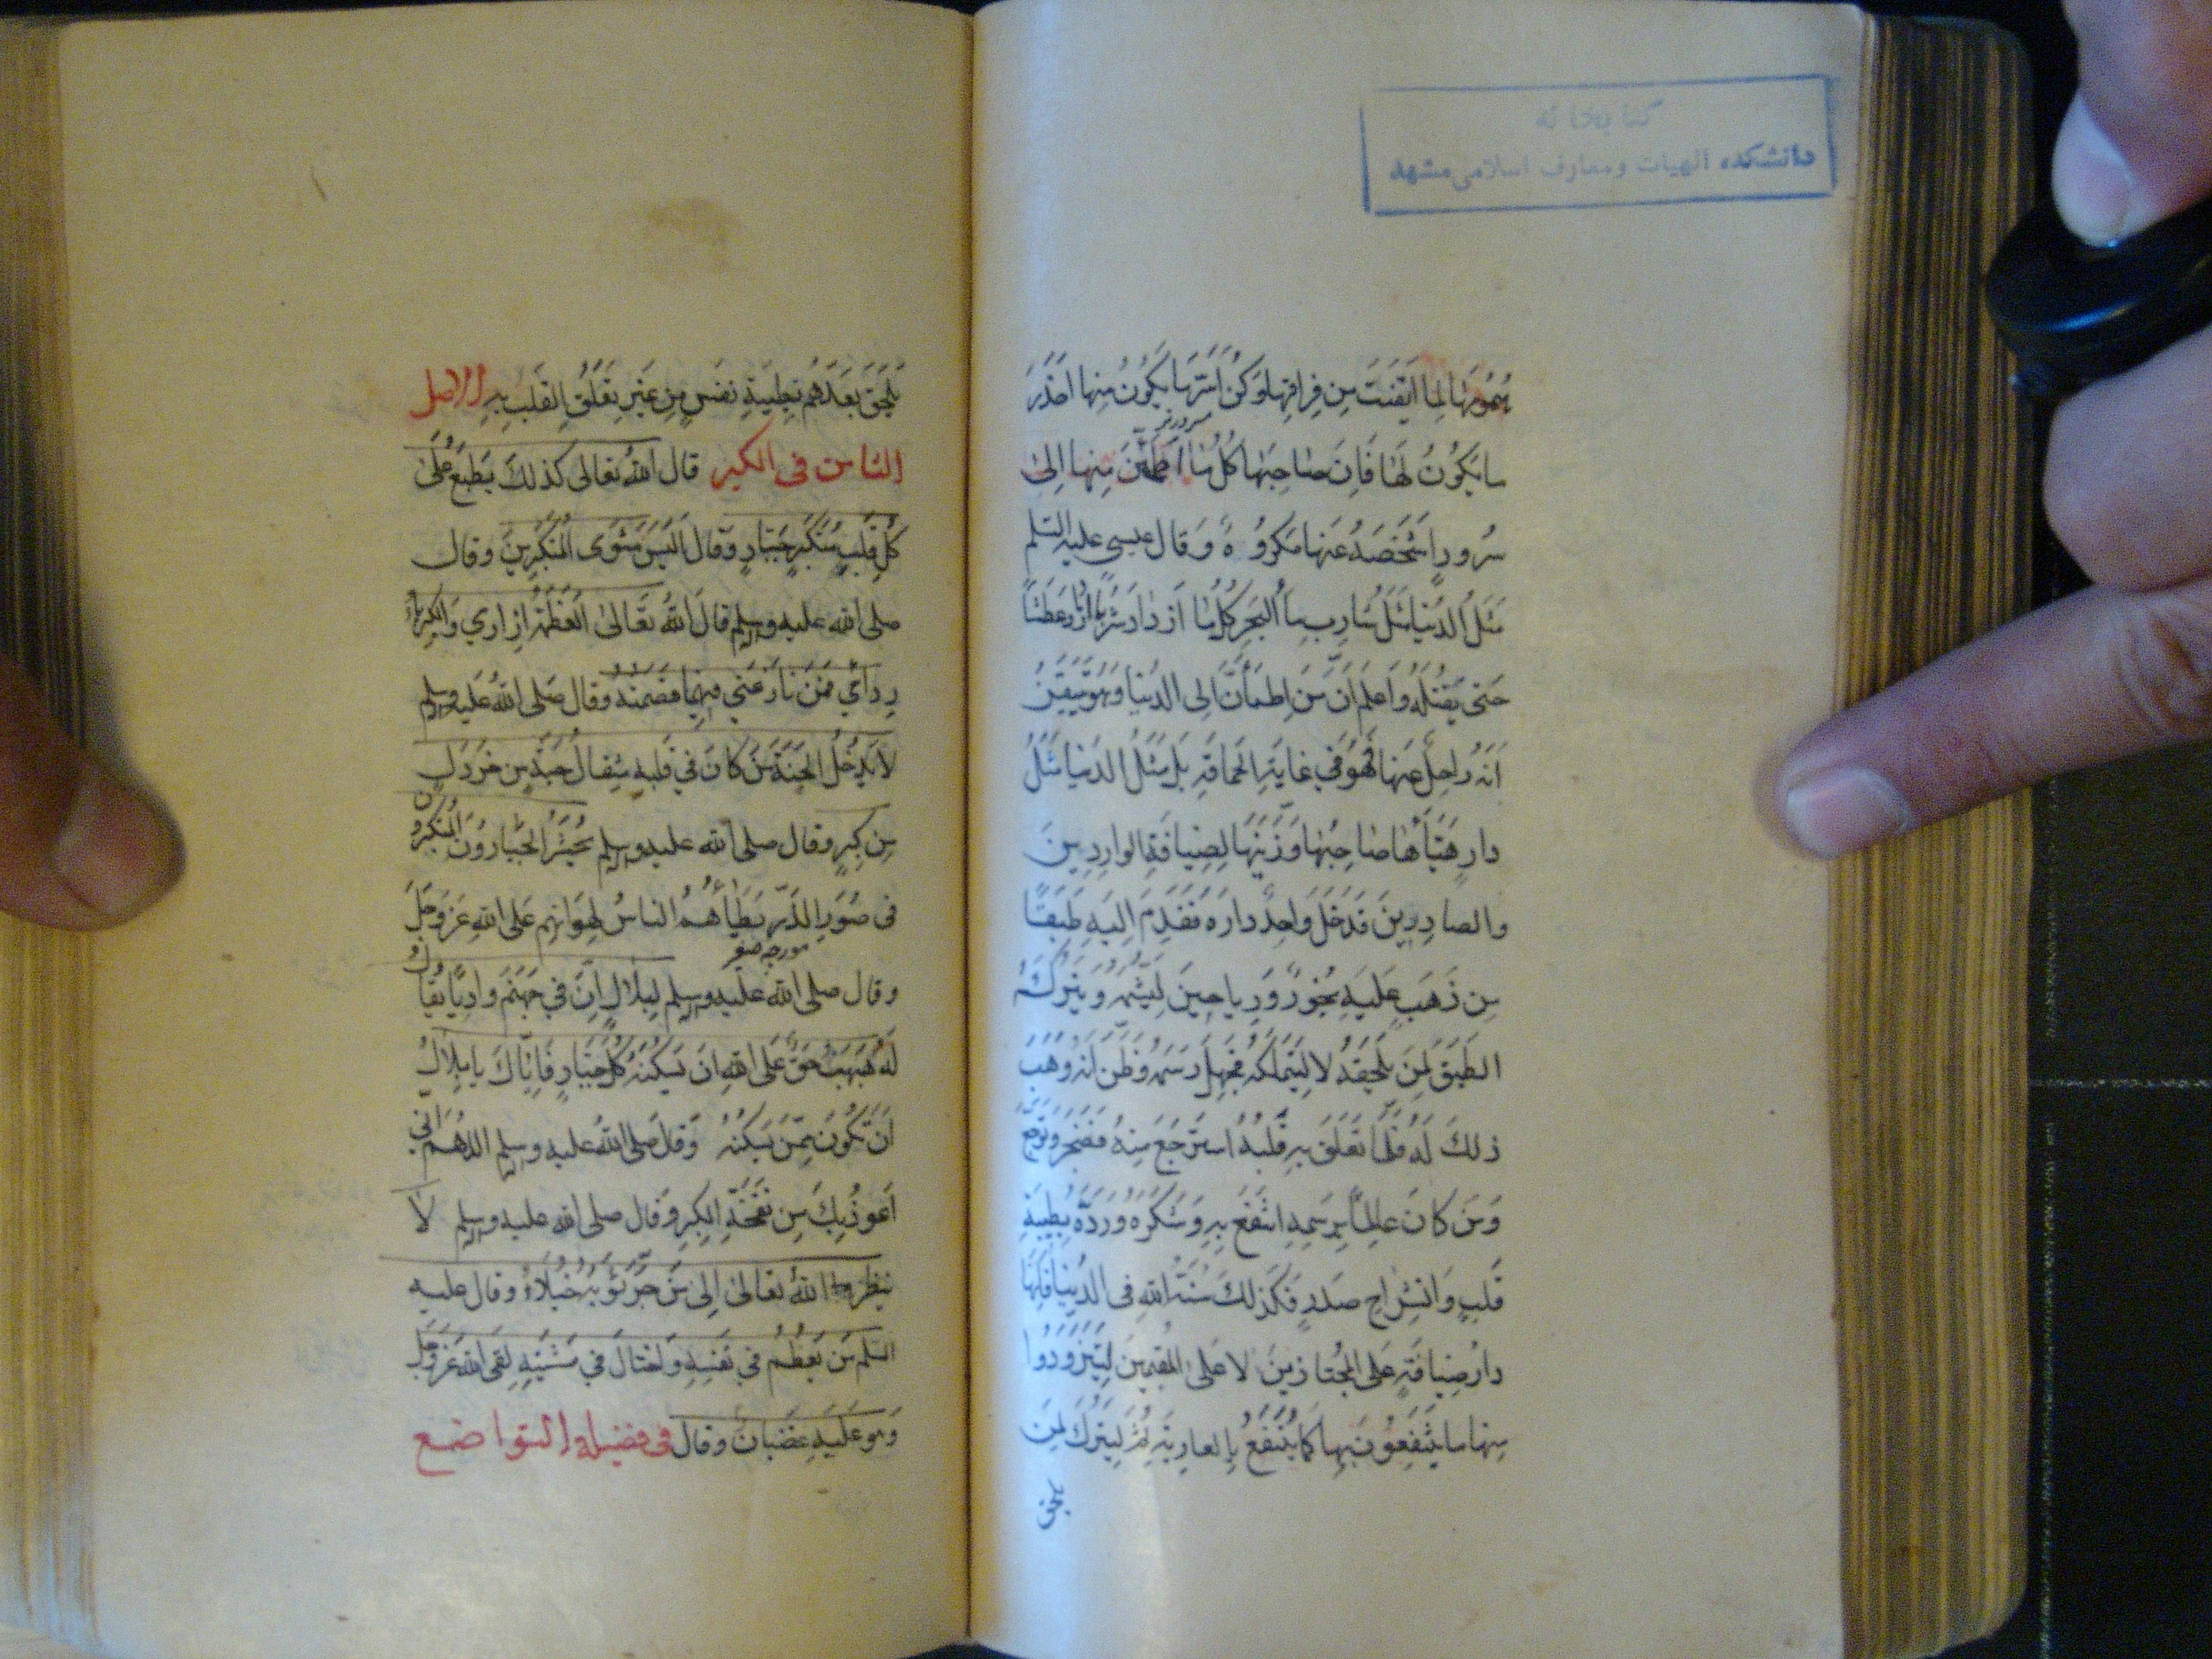 كتابخانه
دانشكده الهيات ومعارف اسلامى مشهد
هُمُومَهَا لِما اَيْقَنْتَ مِن فِراقِها وَكُنْ اَسَرَّ ما يَكُونُ مِنها احْذَرَ
ما يَكُوْنُ لَهَا فَاِنَّ صَاحِبَها كُلَّمَا اطْمَئَنَّ مِنها اِلىٰ
سُرورٍ اَشْخَصَهُ عَنها مَكرُوهٌ وَقال عيسى عليه السّلم
مَثَلُ الدُّنيا مَثَلُ شَارِبِ ماءِ البَحرِ كُلَّمَا اَزْدَادَ شُرْبًا ازْدادَ عَطَشًا
حَتى يَقْتُلَهُ وَاعلم اَنَّ مَنِ اطمَأنَّ اِلى الدُنيا وَهُوَ يَتَيَقَّنُ
اَنَّهُ رَاحِلٌ عَنها فَهُوَ في غايَةِ الحَماقَةِ بَل مَثَلُ الدُنيا مَثَلُ
دارٍ هَيَّأَهٰا صَاحِبُها وَزَيَّنَهَا لِضِيافَةِ الوارِدِينَ
والصادِرِينَ فَدَخَلَ وَاحِدٌ دارَهُ فَقَدِمَ اِليَهِ طَبَقًا
مِن ذَهَبٍ عَليَهِ بُخُورٌ وَرِياحِينَ لِيَشُمَّهُ وَيَترُكَهُ
الطَبَق لِمَن يَلْحَقُهُ لا لِيَتَمَلَّكَهُ فَجَهِلَ رَسْمَهُ وَظَنَّ اَنّه وَهَبَ
ذلكَ لَهُ فَلَمَّا تَعَلَّقَ بِهِ قَلْبُهُ اسْتَرجَعَ مِنهُ فَضَجِرَ وَتَوَجَّعَ
وَمَن كانَ عالِمًا بِرَسْمِهِ انْتَفَعَ بِهِ وَشَكَرَهُ وَرَدَّهُ بِطِيبَةِ
قَلبٍ وَانشِراحِ صَدرٍ فَكَذلكَ سُنّة الله فى الدُّنيا فَاِنّها
دارُ ضِيافَةٍ عَلى المُجْتازِينَ لا عَلى المُقيمِينَ لِيَتَزَوَّدُوا
مِنها ما يَنْتَفِعُونَ بِها كَما يُنْتَفَعُ بِالعارِيَةِ ثُمَّ لِيَتْرُكَ لِمَن
يلحق
يَلحَق بَعدَهُم بِطِيبَةِ نَفسٍ مِن غَيرِ تَعَلُّقِ القَلبِ بِهِ الاصل
الثامن فى الكبر قال اللهُ تعالى كذلك يَطْبَعُ عَلىٰ
كُلِّ قَلبِ مُتَكَبِّرٍ جَبّارٍ وَقال اَلَيْسَ مَثوَى المُتَكَبِّرِينَ وقال
صلى الله عليه وسلم قال اللهُ تَعَالىٰ العَظَمَةُ اِزاري وَالكِبرِيَاءُ
رِدائِي فَمَن نازَعَنِي فِيهِمَا قَصَمْتُهُ وَقال صَلى اللهُ عَليه وسلم
لا يَدْخُلُ الجَنَّةَ مَن كَانَ في قَلبِهِ مِثقالُ حَبَّةٍ مِن خَردَلٍ
مِن كِبرٍ وقال صلى الله عليه وسلم يُحشَرُ الجَبّارُونَ المُتكبرون
فى صُوَرِ الذَّرِّ يَطَأُهُمُ الناسُ لِهَوَانِهِم عَلى اللهِ عَزَّ وَجَلَّ
مورچه صغر
وقال صلى الله عليه وسلم لِبِلالٍ اِنَّ في جَهَنّم وادِيًا يُقالُ
لَهُ هَبْهَبُ حَقٌّ عَلى اللهِ اَن يُسكِنَهُ كُلَّ جَبّارٍ فَاِيّاكَ يا بِلالُ
اَن تَكُونَ مِمَّن يَسكُنُهُ وَقال صَلى الله عليه وسلم اللهُمَّ اني
اَعوذُ بِكَ مِن نَفْخَةِ الكِبرِ وَقال صلى الله عليه وسلم لا
يَنظُر اللهُ تعالىٰ اِلى مَن جَرَّ ثَوبَهُ خُيَلاءً وَقال عليه
السّلم مَن تَعَظَّمَ في نَفسِهِ وَاختالَ في مَشْيِهِ لَقِيَ اللهَ عَزّ وَجَلّ
وَهو عَلَيهِ غَضبَانٌ وَقال فى فضيلة التواضع